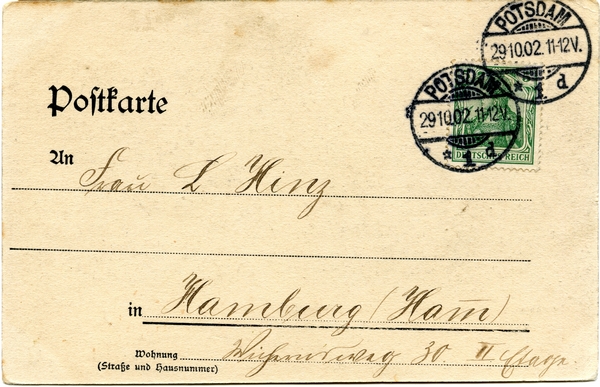 POTSDAM
29.10.02.11-12V.
* 1 d
POTSDAM
29.10.02.11-12V.
* 1 d
DEUTSCHES REICH
Postkarte
An
Frau L Hinz
in Hamburg (Ham̄)
Wohnung 30 II Etage
(Straße und Hausnummer)